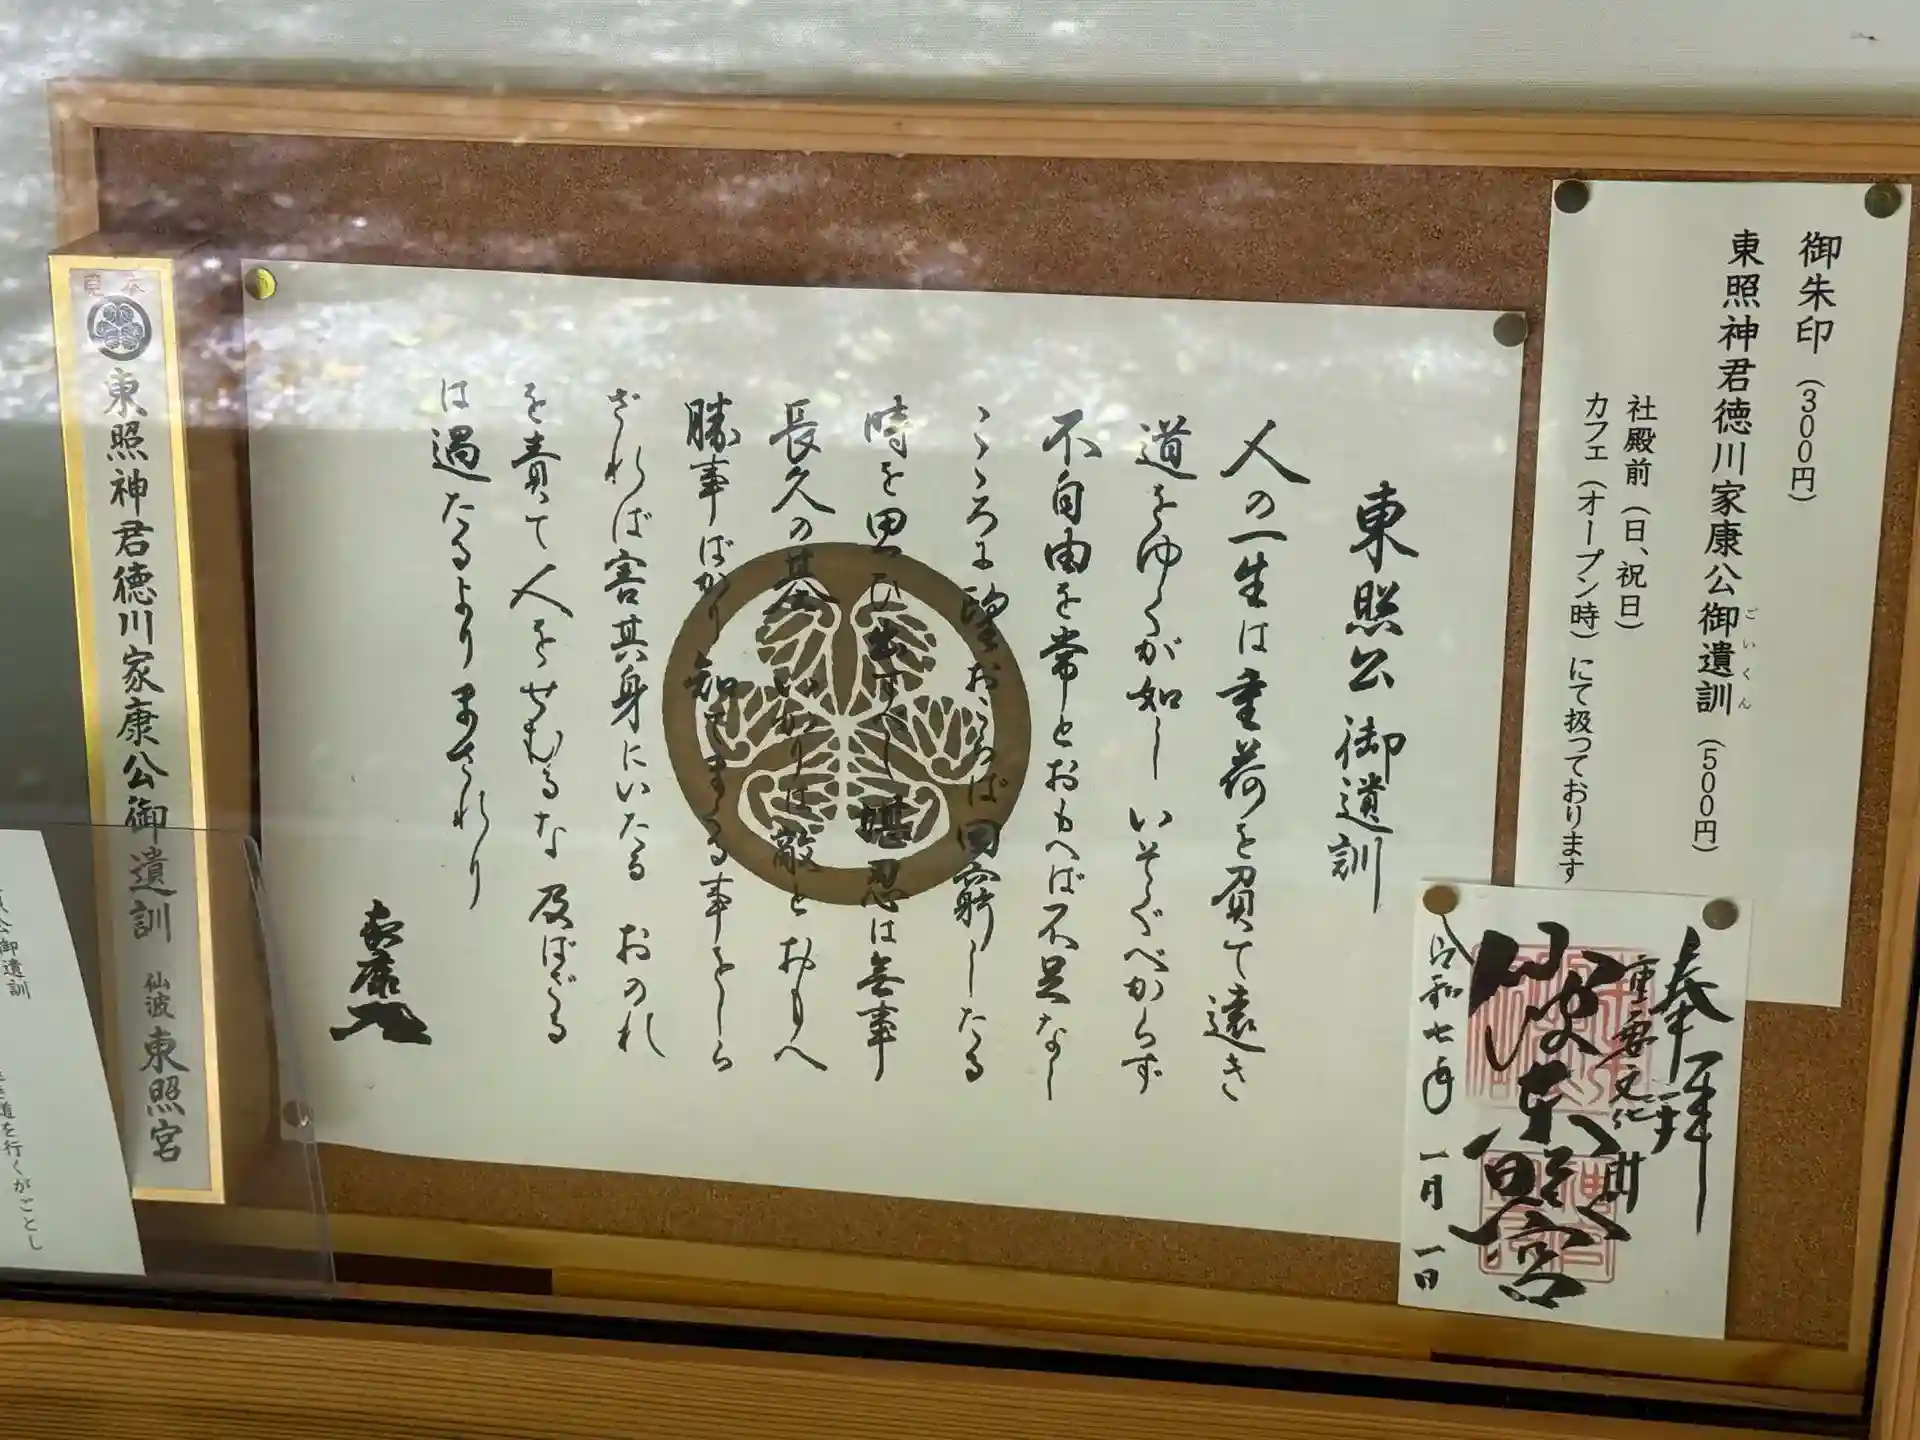 御朱印（300円）
東照神君徳川家康公御遺訓（500円）
ごいくん
社殿前（日、祝日）
カフェ（オープン時）にて扱っております
東照公御遺訓
人の一生は重荷を負て遠き
道をゆくが如し いそぐべからず
不自由を常とおもへば不足なし
こころに望おこらば困窮したる
時を思ひ出すべし 堪忍は無事
長久の基 いかりは敵とおもへ
勝事ばかり知てまくる事をしら
ざれば害其身にいたる おのれ
を責て人をせむるな 及ばざる
は過たるよりまされり
家康
奉拝
重要文化財
仙波東照宮
令和七年 一月 一日
見本
東照神君徳川家康公御遺訓 仙波 東照宮
公御遺訓
道を行くがごとし